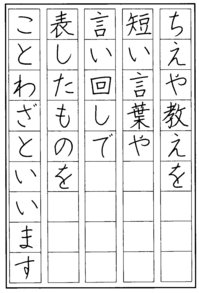 ちえや教えを
短い言葉や
言い回しで
表したものを
ことわざといいます